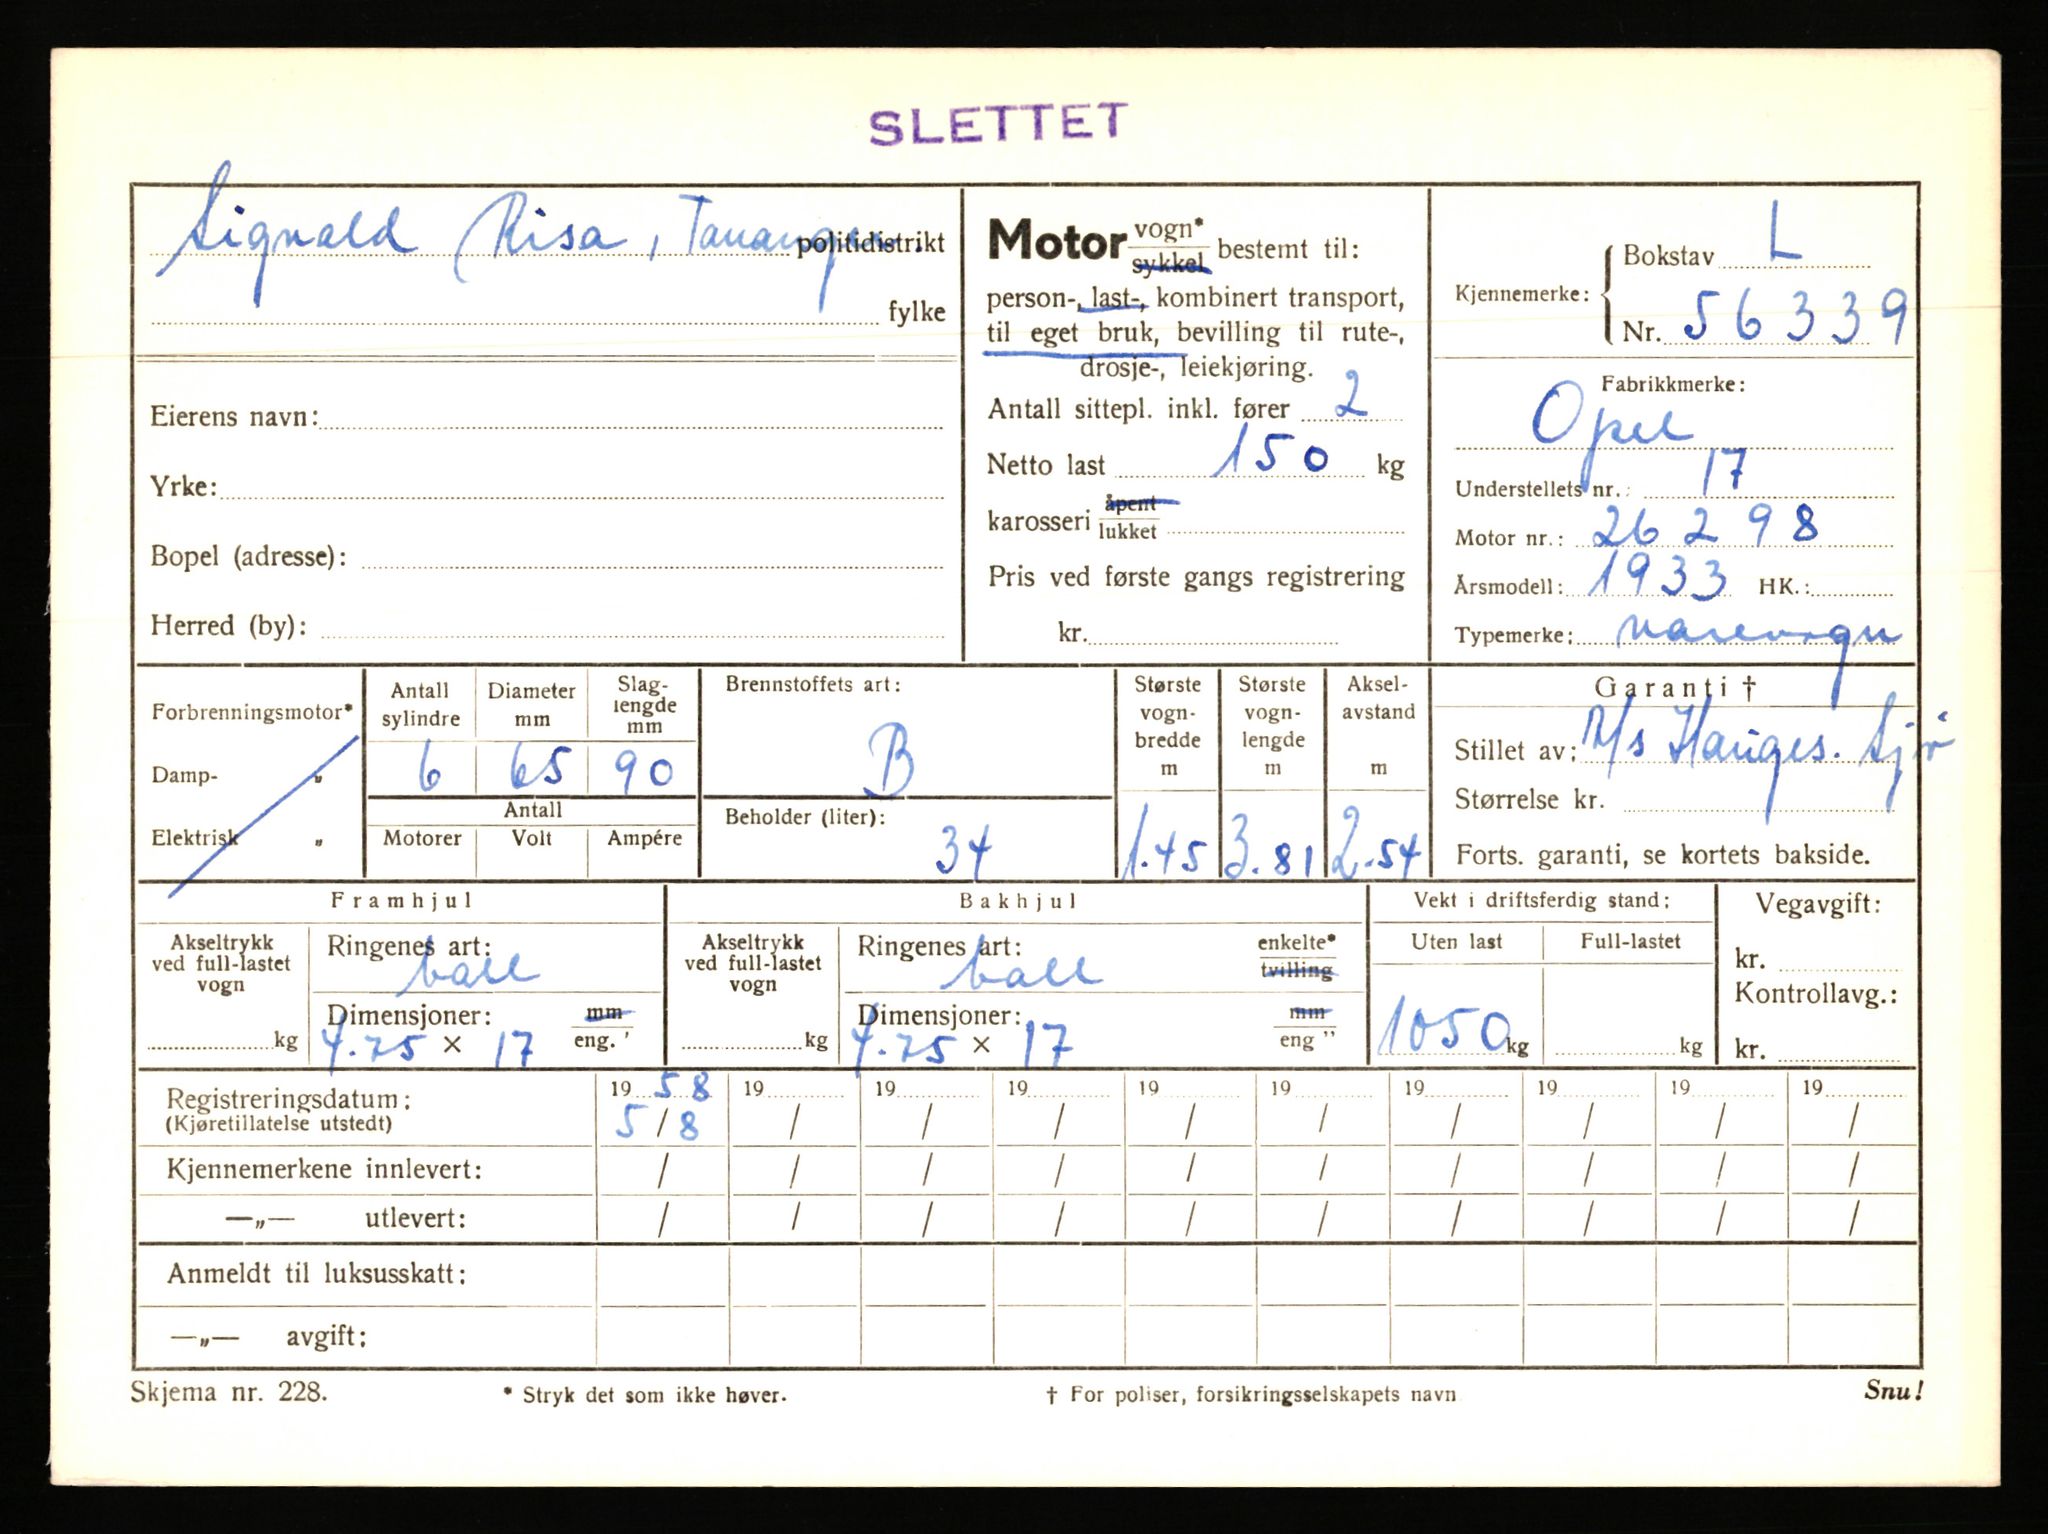 SLETTET
Signald Risa, Tananger.
politidistrikt
fylke
Eierens navn:
Yrke:
Bopel (adresse):
Herred (by):
Motor vogn* sykkel bestemt til:
person-, last-, kombinert transport,
til eget bruk, bevilling til rute-,
drosje-, leiekjøring.
Antall sittepl. inkl. fører 2
Netto last 150 kg
karosseri åpent lukket
Pris ved første gangs registrering
kr.
Kjennemerke: Bokstav L
Nr. 56339
Fabrikkmerke:
Opel
Understellets nr.: 17
Motor nr.: 26298
Årsmodell: 1933 HK.:
Typemerke: varevogn
Forbrenningsmotor*
Damp- „
Elektrisk „
Antall sylindre 6
Diameter mm 65
Slag-lengde mm 90
Antall
Motorer Volt Ampére
Brennstoffets art:
B
Beholder (liter):
34
Største vogn-bredde m 1.45
Største vogn-lengde m 3.81
Aksel-avstand m 2.54
Garanti †
Stillet av: A/s Hauges. Sjø
Størrelse kr.
Forts. garanti, se kortets bakside.
Framhjul
Akseltrykk ved full-lastet vogn
kg
Ringenes art:
ball
Dimensjoner: mm eng. '
4.75 × 17
Bakhjul
Akseltrykk ved full-lastet vogn
kg
Ringenes art: enkelte* tvilling
ball
Dimensjoner: mm eng "
4.75 × 17
Vekt i driftsferdig stand:
Uten last Full-lastet
1050 kg kg
Vegavgift:
kr.
Kontrollavg.:
kr.
Registreringsdatum: 19 58 19 19 19 19 19 19 19 19 19
(Kjøretillatelse utstedt) 5/8 / / / / / / / / /
Kjennemerkene innlevert: / / / / / / / / / /
—„— utlevert: / / / / / / / / / /
Anmeldt til luksusskatt:
—„— avgift:
Skjema nr. 228. * Stryk det som ikke høver. † For poliser, forsikringsselskapets navn Snu!